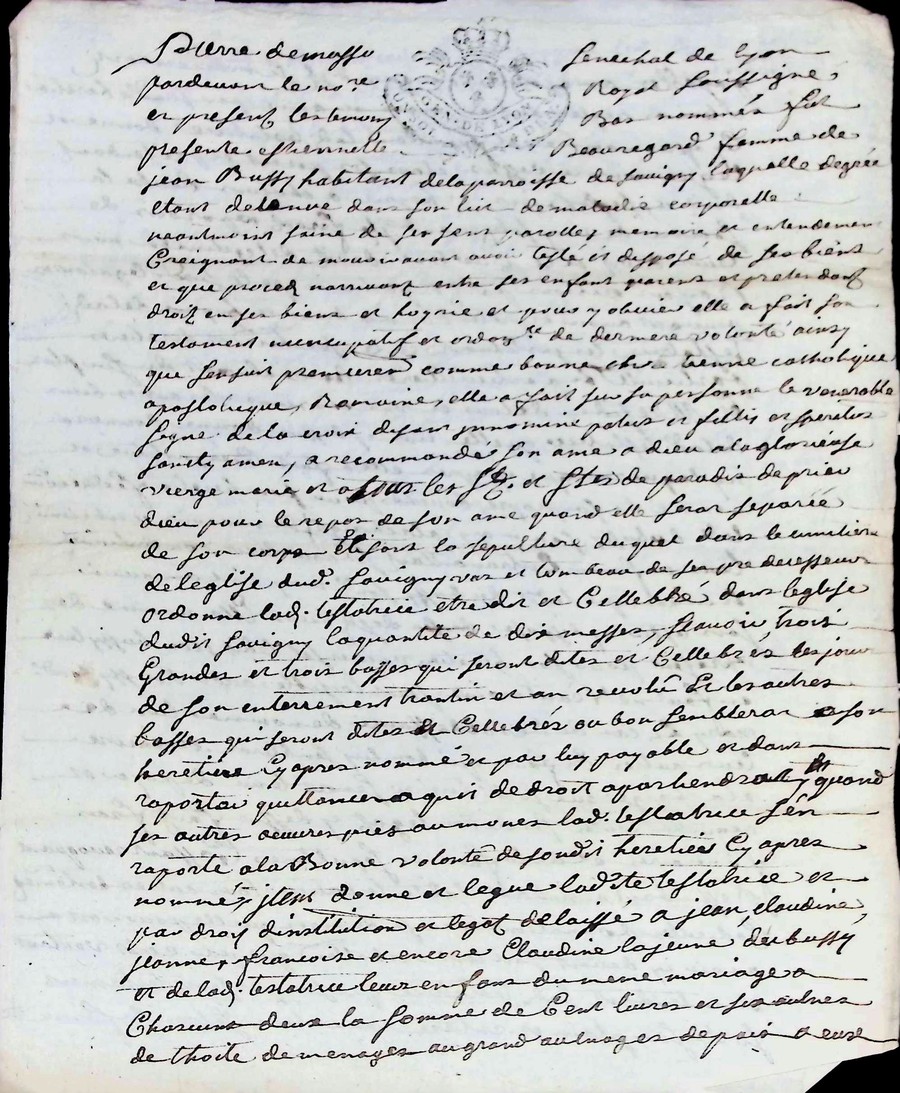 Pierre de masso senechal de lyon
pardevant le no.re Royal soussigné
et presentz les temoins Bas nommés fut
presente estiennette Beauregard femme de
jean Bussy habitant de la parroisse de savigny laquelle degrée
etant detenue dans son lict de maladie corporelle
neantmoint saine de ses sens parolles, memoire et entendemen
Creignant de mourir avant avoir testé et disposé de ses biens
et que proces narrivent entre ses enfans parens et pretendantz
droitz en ses biens et hoyrie et pour y obvier elle a fait son
testament nuncupatif et ordon.ce de derniere volonté ainsy
que sensuit premieremt comme bonne chretienne catholique
apostolique, Romaine, elle a fait sur sa personne le venerable
signe de la croix disant innomine patris et fillis et speritus
santy amen, a recommandé son ame a dieu a la glorieuse
vierge marie et a tous les stz. et stes de paradis de prier
dieu pour le repos de son ame quand elle serat separée
de son corps Elisant la sepulture duquel dans le cimitiere
de leglise dud. savigny vas et tombeau de ses predecesseurs
ordonne lad. testatrice etre dit et Cellebré dans leglise
dudit savigny la quantité de dix messes, scavoir trois
Grandes et trois basses qui seront dites et Cellebrés les jours
de son enterrement trantin et an revolu Et les autres
basses qui seront dites et Cellebrés au bon semblerat a son
heretiers Cy apres nommé et par luy payable et dans
raporter quittance a qui de droit apartiendrat Et quand
ses autres oeuvres pies aumones lad. testatrice sen
raporte a la Bonne volonté de sondit heretier Cy apres
nommé, item donne et legue ladite testatrice et
par droit dinstitution et legat delaissé a jean, claudine,
jeanne, francoise et encore Claudine la jeune des bussy
et de lad. testatrice leurs enfans du meme mariage a
Chascuns deux la somme de Cent livres et six aulnes
de thoile de menages au grand aulnages de pais a eux